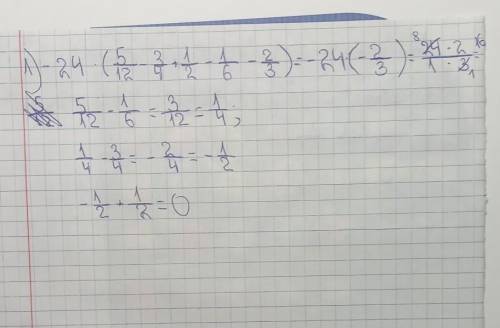 1) -24 · (5/12 - 3/4 + 1/2 - 1/6 - 2/3) = -24 · (-2/3) = 24 · 2 / 1 · 3 = 16
5/12 - 1/6 = 3/12 = 1/4;
1/4 - 3/4 = -2/4 = -1/2
-1/2 + 1/2 = 0